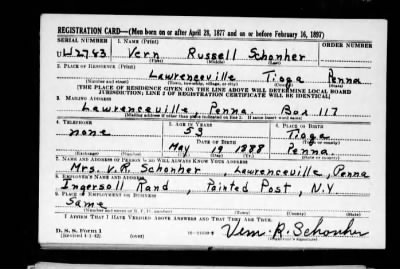 REGISTRATION CARD—(Men born on or after April 28, 1877 and on or before February 16, 1897)
SERIAL NUMBER 1. NAME (Print) ORDER NUMBER
U 42783 Vern Russell Schonher
(First) (Middle) (Last)
2. PLACE OF RESIDENCE (Print)
Lawrenceville Tioga Penna
(Number and street) (Town, township, village, or city) (County) (State)
[THE PLACE OF RESIDENCE GIVEN ON THE LINE ABOVE WILL DETERMINE LOCAL BOARD
JURISDICTION; LINE 2 OF REGISTRATION CERTIFICATE WILL BE IDENTICAL]
3. MAILING ADDRESS
Lawrenceville Penna. Box 117
[Mailing address if other than place indicated on line 2. If same insert word same]
4. TELEPHONE 5. AGE IN YEARS 6. PLACE OF BIRTH
none 53 Tioga
DATE OF BIRTH (Town or county)
May 19 1888 Penna.
(Exchange) (Number) (Mo.) (Day) (Yr.) (State or country)
7. NAME AND ADDRESS OF PERSON WHO WILL ALWAYS KNOW YOUR ADDRESS
Mrs. V. R. Schonher Lawrenceville, Penna
8. EMPLOYER'S NAME AND ADDRESS
Ingersoll Rand, Painted Post, N.Y.
9. PLACE OF EMPLOYMENT OR BUSINESS
Same
(Number and street or R. F. D. number) (Town) (County) (State)
I AFFIRM THAT I HAVE VERIFIED ABOVE ANSWERS AND THAT THEY ARE TRUE.
D. S. S. Form 1
(Revised 4-1-42) (over) Vern R. Schonher
(Registrant's signature)